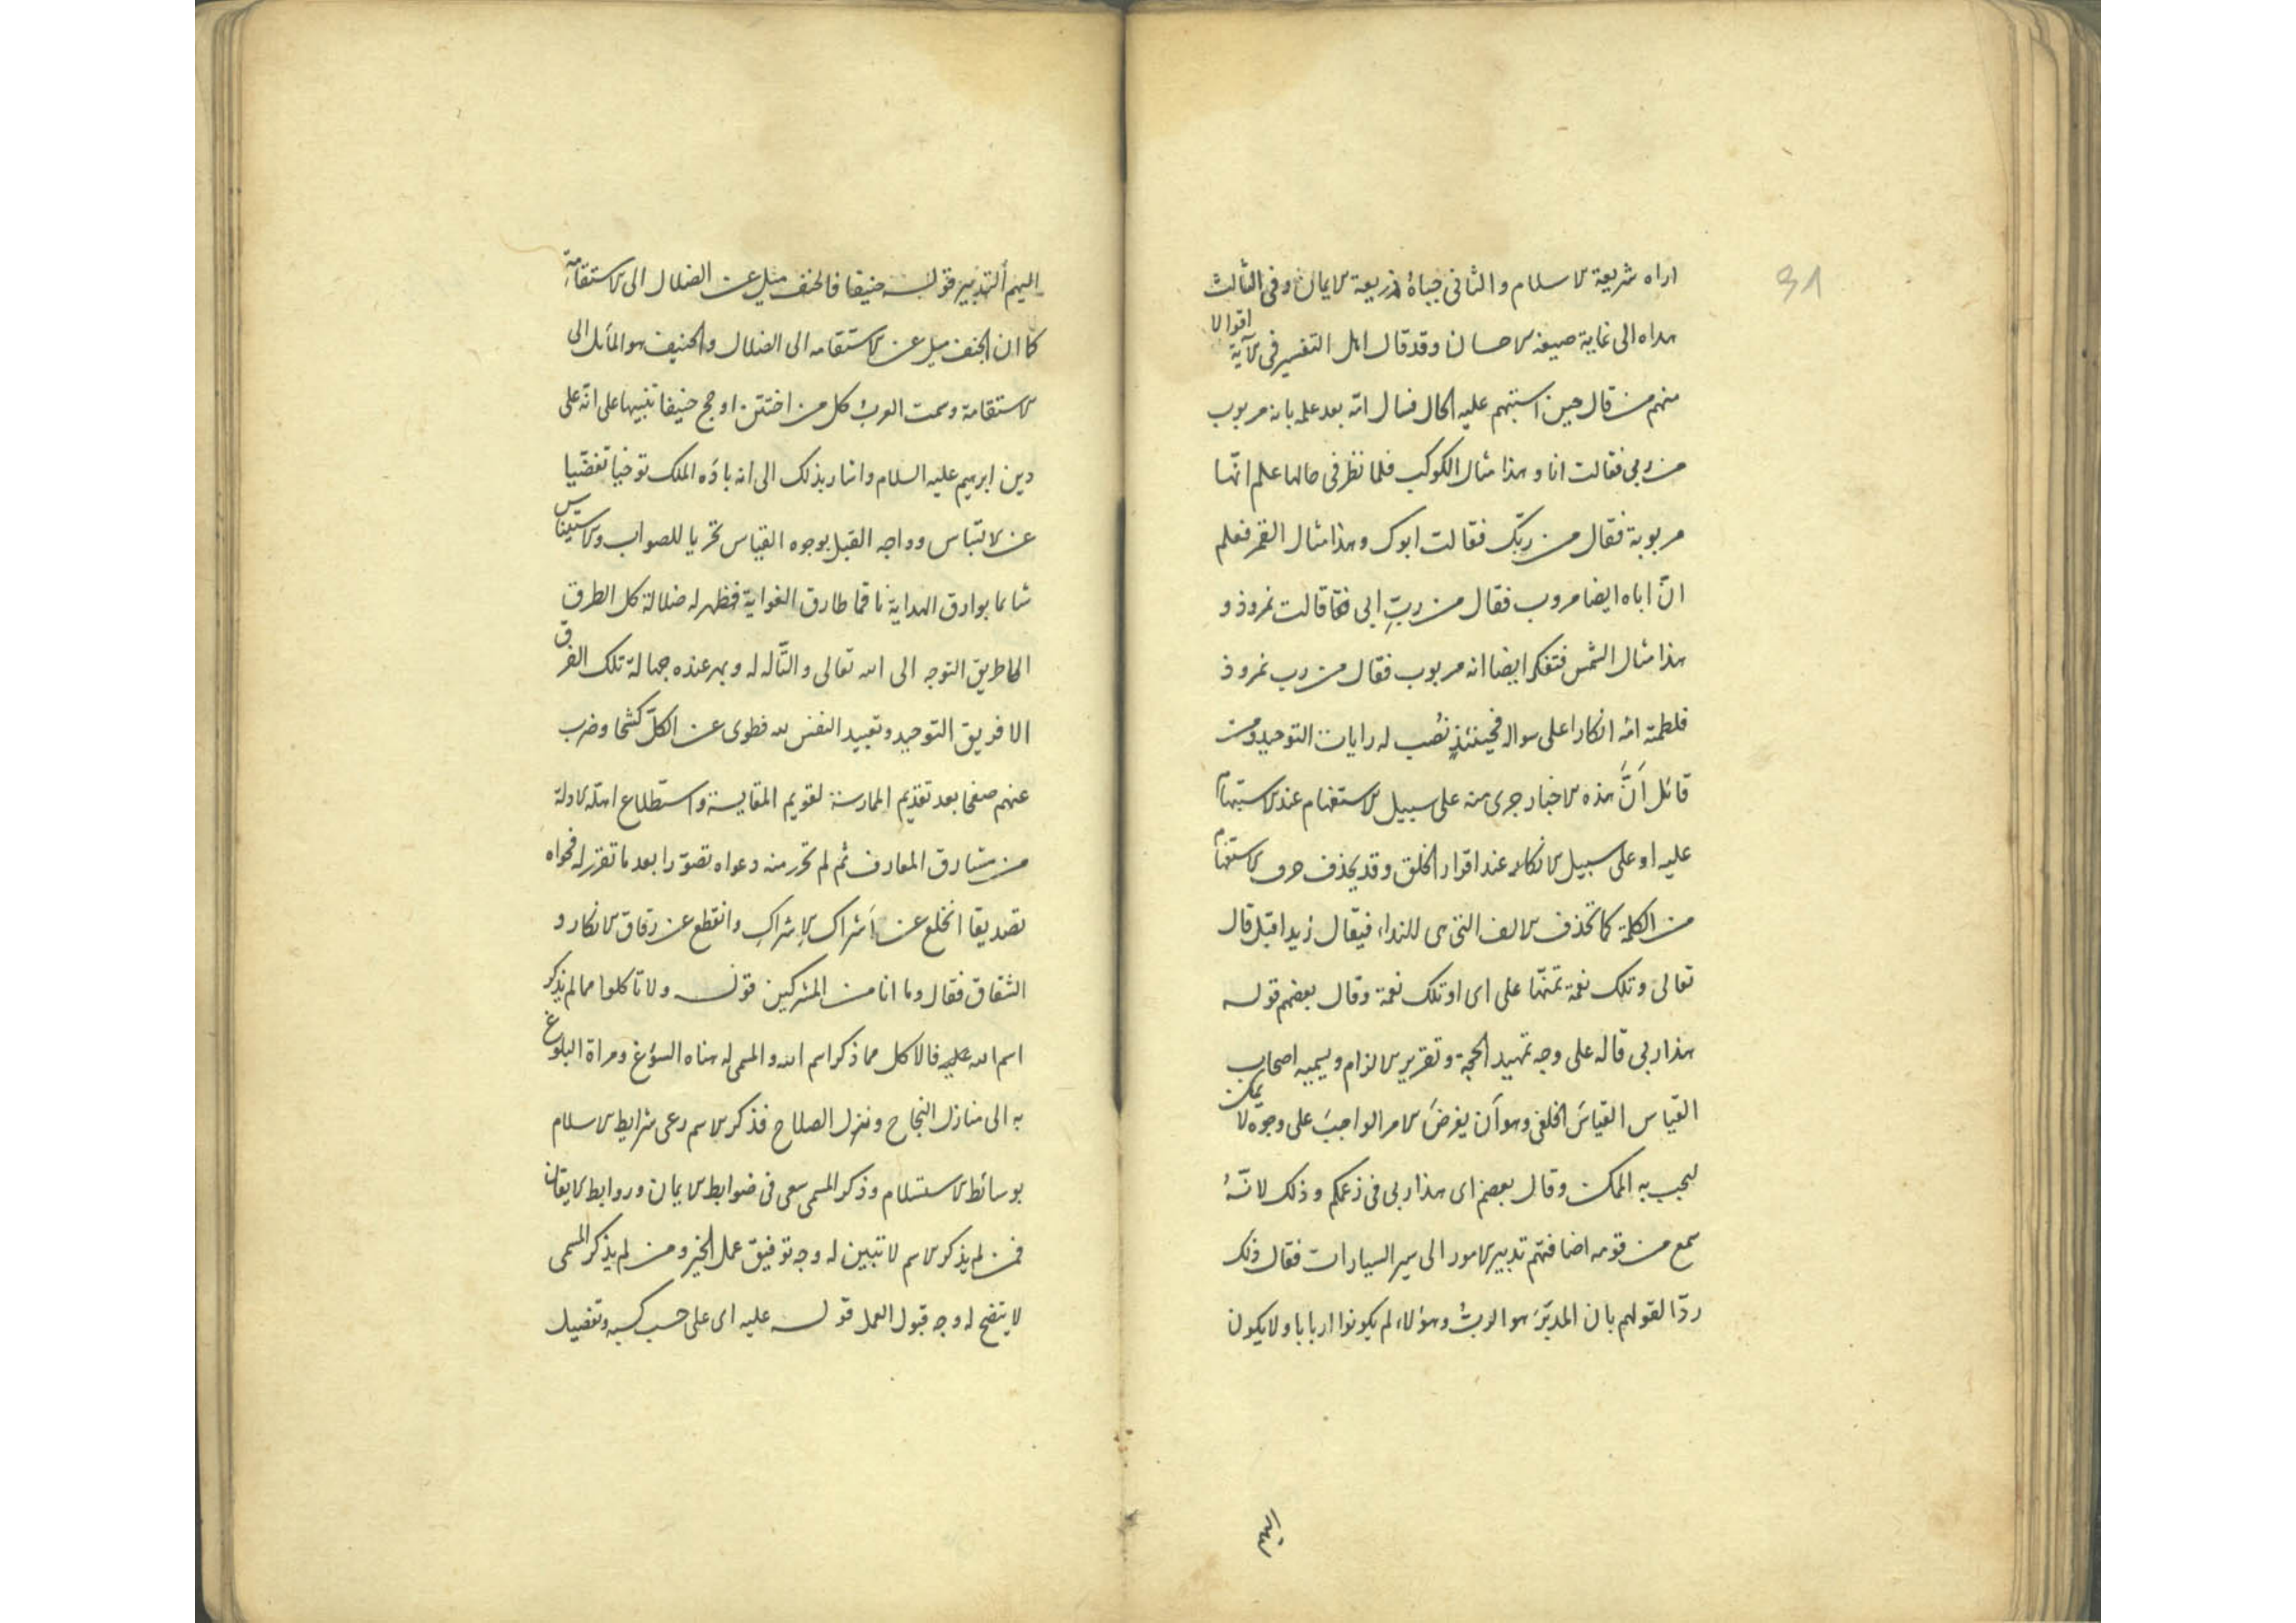 31
اراه شريعة الاسلام والثانى حباه ذريعة الايمان وفى الثالث
هداه الى غاية صيغة الاحسان وقد قال اهل التفسير فى الآية اقوالا
منهم من قال حين استبهم عليه الحال فسال امّه بعد علمه بانه مربوب
من ربى فقالت انا وهذا مثال الكوكب فلما نظر فى حالها علم انّها
مربوبة فقال من ربّك فقالت ابوك وهذا مثال القمر فعلم
انّ اباه ايضا مروب فقال من ربّ ابى فقالت نمروذ و
هذا مثال الشمس فتفكر ايضا انه مربوب فقال من رب نمروذ
فلطمته امّه انكارا على سواله فحينئذٍ نُصب له رايات التوحيد ومن
قائل اَنَّ هذه الاخبار جرى منه على سبيل الاستفهام عند الاستبهام
عليه او على سبيل الانكار عند اقرار الخلق وقد يحذف حرف الاستفهام
من الكلمة كما تحذف الالف التى هى للنداء فيقال زيد اقبل قال
تعالى وتلك نعمة تمنّها على اى او تلك نعمة وقال بعضهم قوله
هذا ربى قاله على وجه تمهيد الحجة وتقرير الالزام ويسميه اصحاب
القياس القياسَ الخلفى وهو اَن يفرضَ الامر الواجبَ على وجوه لا يمكن
ليجب به الممكن وقال بعضهم اى هذا ربى فى زعمكم وذلك لانّهُ
سمع من قومه اضافتهم تدبير الامور الى سير السيارات فقال ذلك
ردّا لقولهم بان المدبّرَ هو الربُّ وهؤلاء لم يكونوا اربابا ولا يكون
اليهم
اليهم ألتدبير قوله حنيفا فالحنف ميل عن الضلال الى الاستقامة
كما ان الجنف ميل عن الاستقامه الى الضلال والحنيف هو المائل الى
الاستقامة وسمت العرب كل من اختتن او حج حنيفا تنبيها على انّه على
دين ابرهيم عليه السلام واشار بذلك الى انه باؤه الملك توخيا تفصّيا
عن الالتباس وواجه القبل بوجوه القياس تحريا للصواب والاستيناس
شايما بوارق الهداية ناقما طارق الغواية فظهر له ضلالة كل الطرق
الا طريق التوجه الى الله تعالى والتّاله له وبهر عنده جهالة تلك الفرق
الا فريق التوحيد وتعبيد النفس له فطوى عن الكلّ كشحا وضرب
عنهم صفحا بعد تقديم الممارسة لقويم المقايسة واستطلاع اهلّه الادلة
من مشارق المعارف ثم لم تحرر منه دعواه تصوّرا بعد ما تقرر له فحواه
تصديقا انخلع عن اَشراك الاِشراكِ وانقطع عن رقاق الانكار و
الشقاق فقال وما انا من المشركين قوله ولا تاكلوا مما لم يذكر
اسم الله عليه فالاكل مما ذكر اسم الله والمسمى له هناه السؤغ ومراة البلوغ
به الى منازل النجاح ونزل الصلاح فذكر الاسم رعى شرايط الاسلام
بوسائط الاستسلام وذكر المسمى سعى فى ضوابط الايمان وروابط الايقان
فمن لم يذكر الاسم لا تتبين له وجه توفيق عمل الخير ومن لم يذكر المسمى
لا يتضح له وجه قبول العمل قوله عليه اى على حسب كسبه وتفضيل